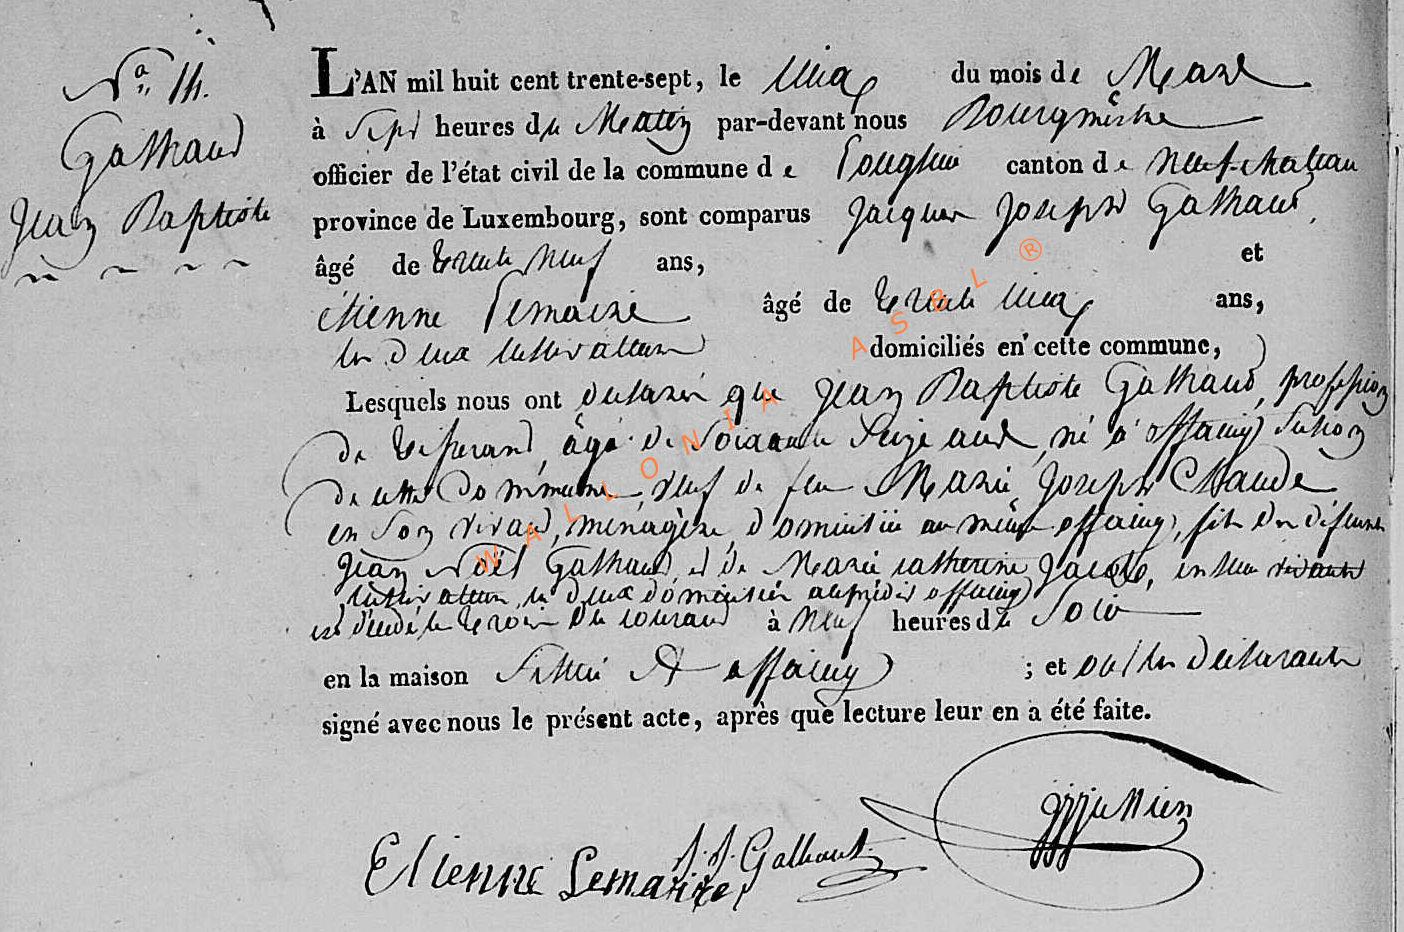 N° 14.
Galhaud
Jean Baptiste
L'AN mil huit cent trente-sept, le cinq du mois de Mars
à Sept heures du Matin par-devant nous Bourgmestre
officier de l'état civil de la commune de Longlier canton de Neufchateau
province de Luxembourg, sont comparus Jacques Joseph Galhaud,
âgé de trente Neuf ans, et
étienne Lemaire âgé de trente cinq ans,
les deux cultivateurs domiciliés en cette commune,
Lesquels nous ont declaré que Jean Baptiste Galhaud, profession
de tisserand, âgé de Soixante Seize ans, né à offaing Section
de cette Commune, veuf de feu Marie Joseph Claude
en Son vivant, ménagère, domiciliée au même offaing, fils des défunts
Jean Noël Galhaud, et de Marie catherine Jacob, en leur vivants
cultivateurs, les deux domiciliés au prédit offaing
est décédé le trois du courant à Neuf heures du Soir
en la maison Située A offaing ; et ont les déclarants
signé avec nous le présent acte, après que lecture leur en a été faite.
J. J. Galhaut
Etienne Lemaire
WALLONIA ASBL ®